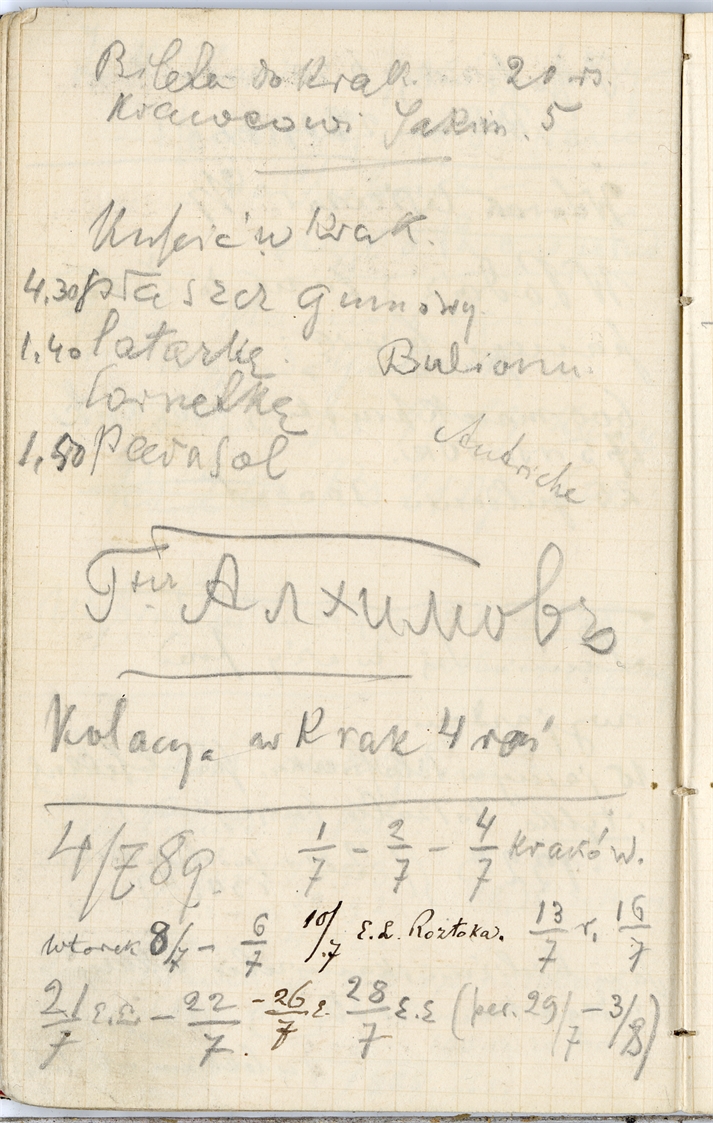 Bileta do Krak. 20 rs.
Krawcowi Jakim. 5
Kupić w Krak.
4.30 płaszcz gumowy
1.40 latarkę. Bulionu.
lornetkę
1.50 Parasol
Autriche
Алхимовъ
Kolacya w Krak 4 
4/7 89. 1/7 - 2/7 - 4/7 Kraków.
wtorek 8/7 - 6/7 10/7 E.L. Roztoka. 13/7 r. 16/7
21/7 - 22/7 - 26/7 E. 28/7 E.E (per. 29/7 - 3/8)